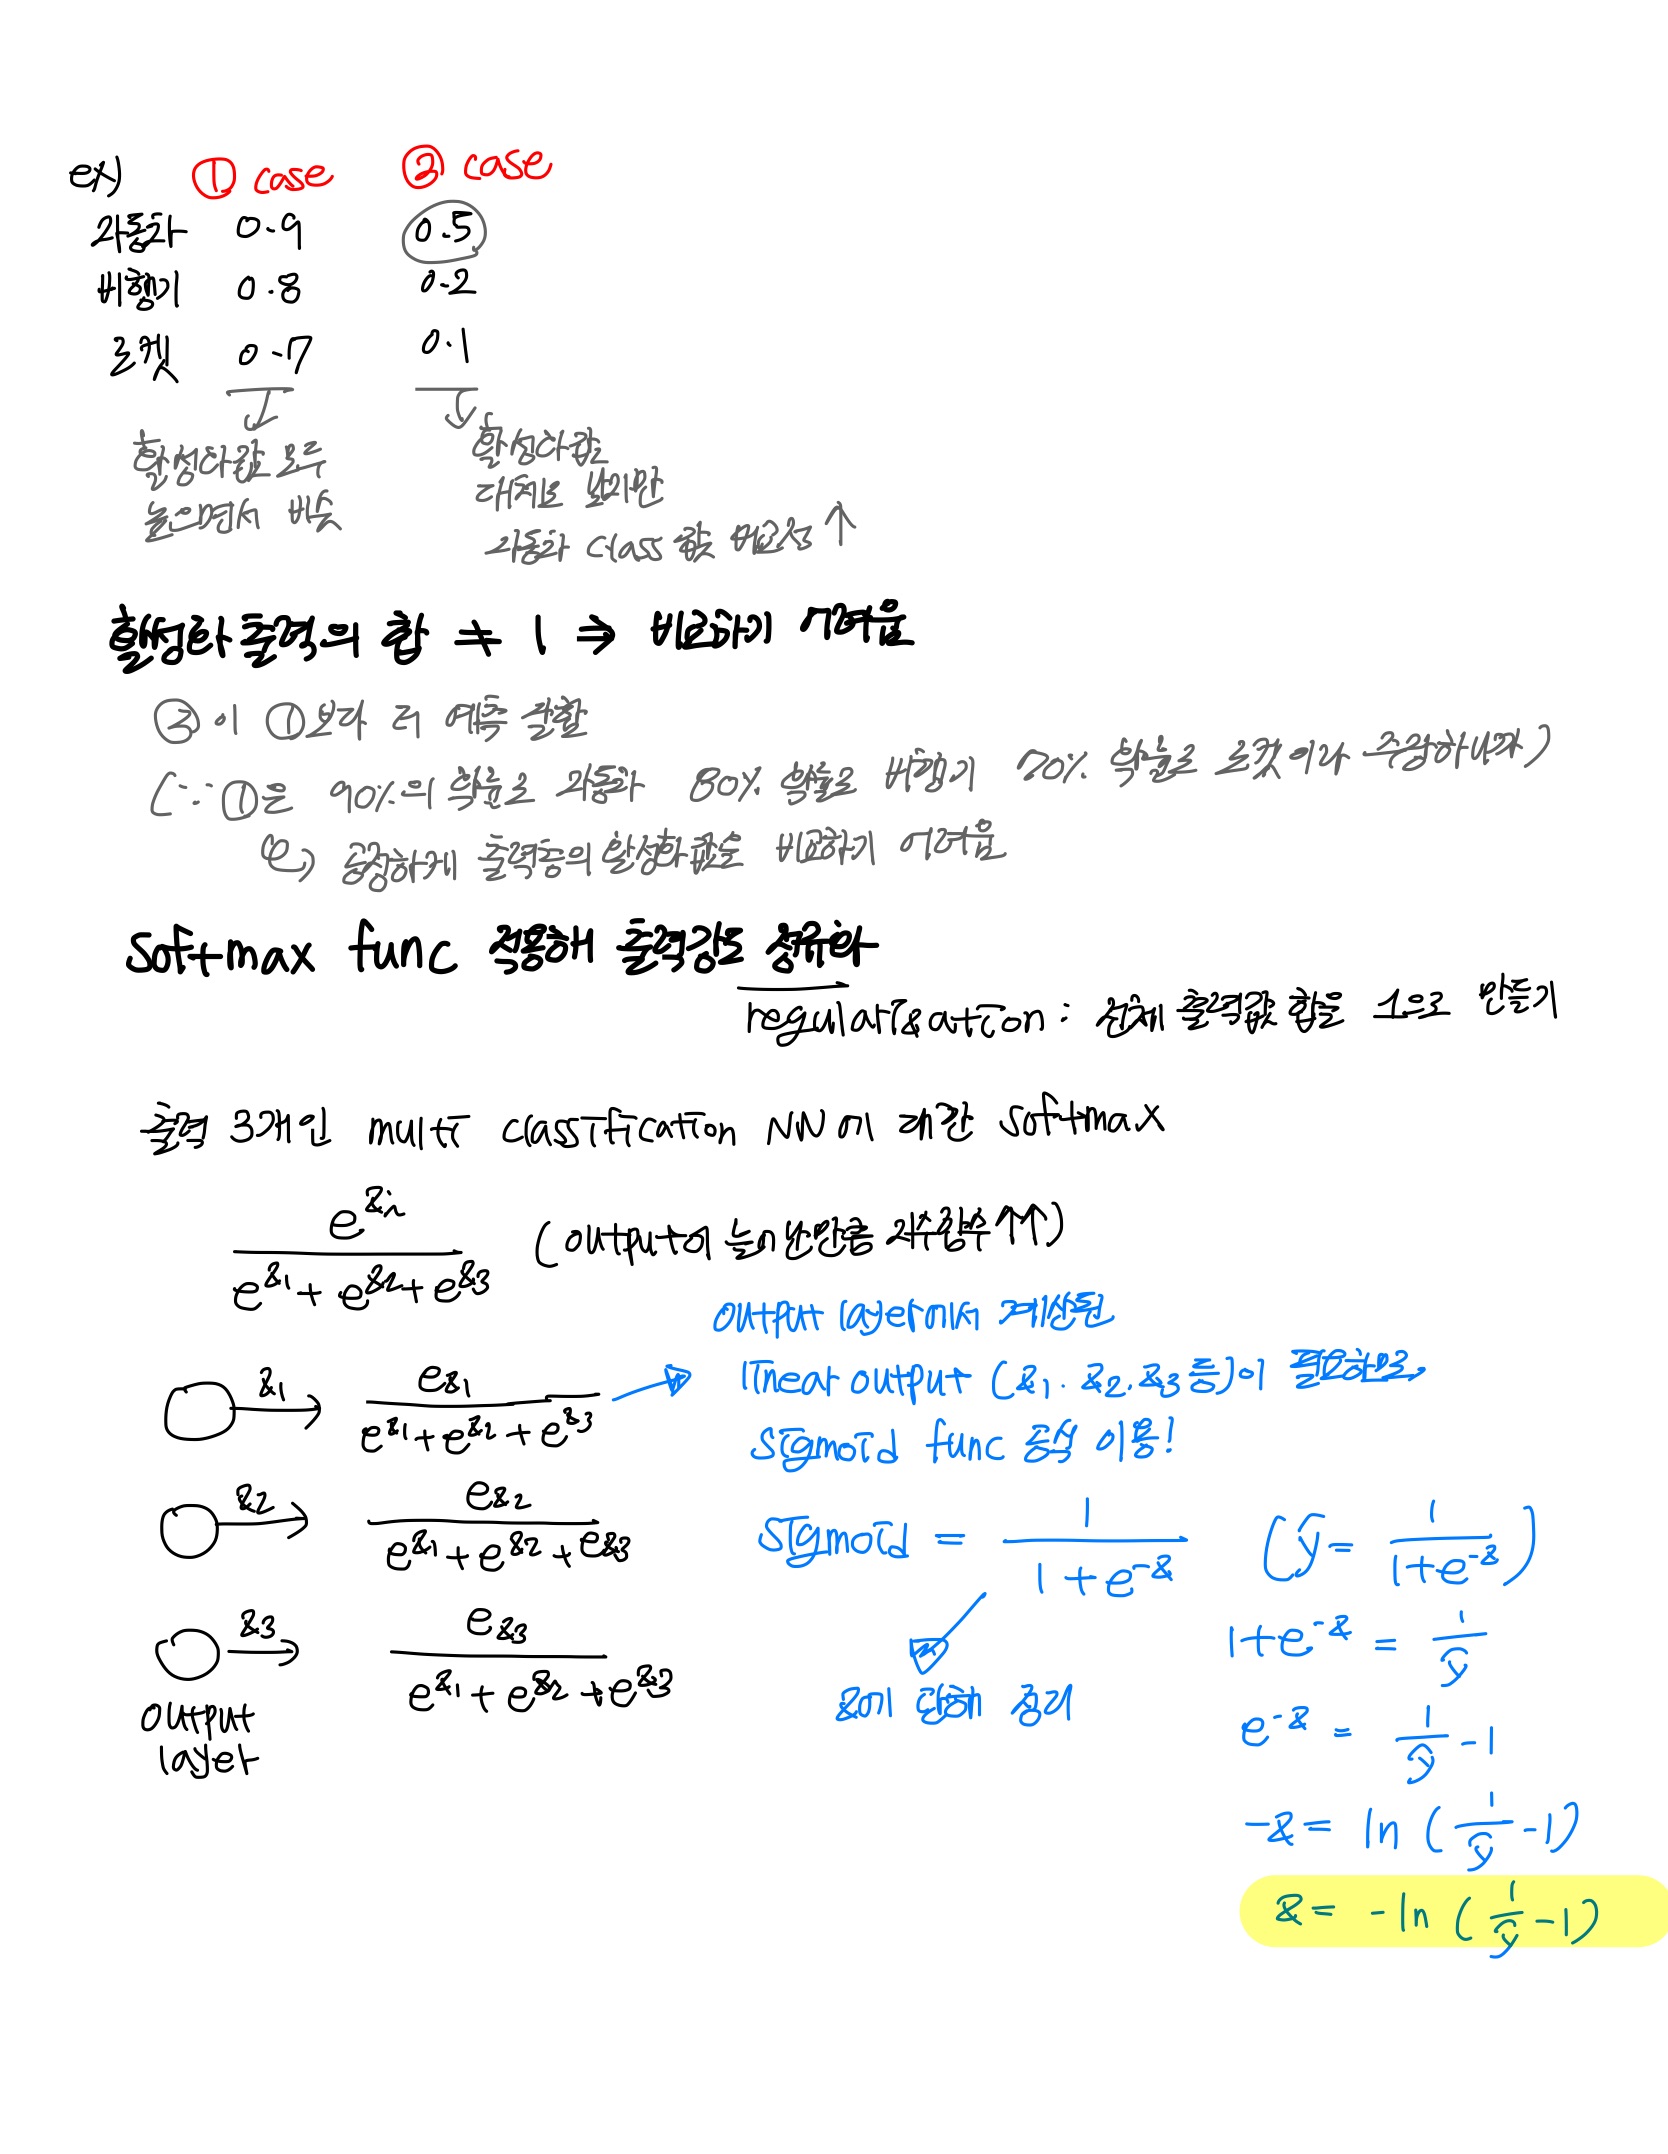 ex) ① case ② case
자동차 0.9 0.5
비행기 0.8 0.2
로켓 0.7 0.1
활성화값 모두
높으면서 비슷
활성화값
대체로 낮지만
자동차 class 활성 비교적 ↑
활성화 출력의 합 ≠ 1 ⇒ 비교하기 어려움
② 이 ①보다 더 예측 잘함
(∵ ①은 90%의 확률로 자동차 80% 확률로 비행기 70% 확률로 로켓이라 주장하니까)
공정하게 출력층의 활성화값을 비교하기 어려움
softmax func 적용해 출력강도 정규화
regularization : 전체 출력값 합을 1으로 만들기
출력 3개인 multi classification NN에 대한 softmax
e^zi / (e^z1 + e^z2 + e^z3) (output이 늘어난만큼 지수함수↑↑)
output layer에서 계산된
linear output (z1. z2. z3 등)이 필요하므로
sigmoid func 공식 이용!
z1 → ez1 / (e^z1 + e^z2 + e^z3)
z2 → ez2 / (e^z1 + e^z2 + e^z3)
z3 → ez3 / (e^z1 + e^z2 + e^z3)
output
layer
sigmoid = 1 / (1 + e^-z) (ŷ = 1 / (1+e^-z))
z에 관해 정리
1+e^-z = 1/ŷ
e^-z = 1/ŷ - 1
-z = ln (1/ŷ - 1)
z = -ln (1/ŷ - 1)